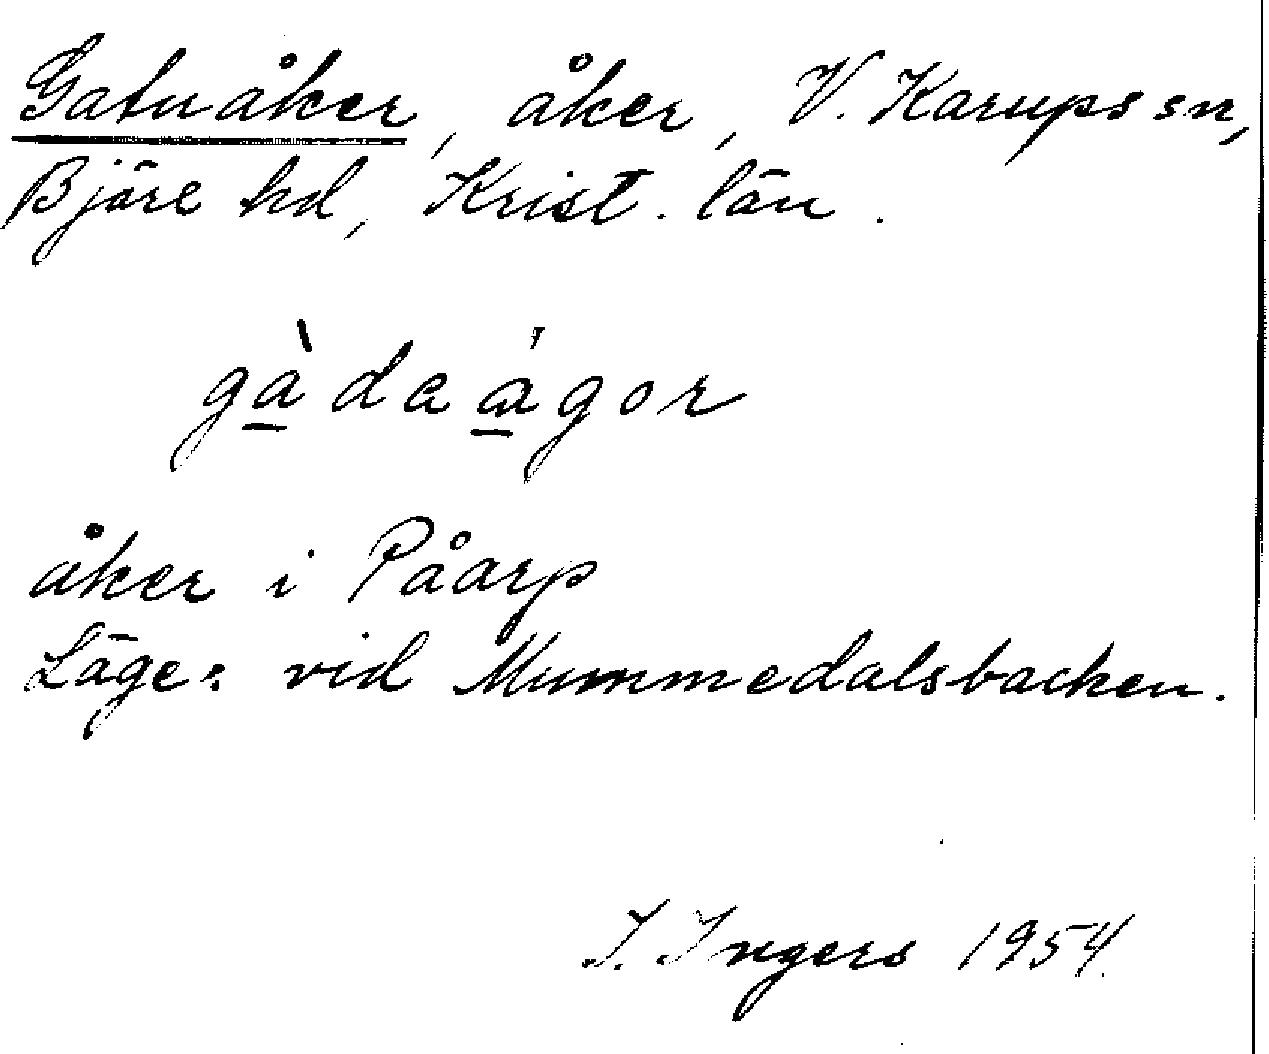 Gatuåker, åker, V. Karups sn,
Bjäre hd, Krist. län.
gàdaágor
åker i Påarp
Läge: vid Mummedalsbacken.
I. Ingers 1954.